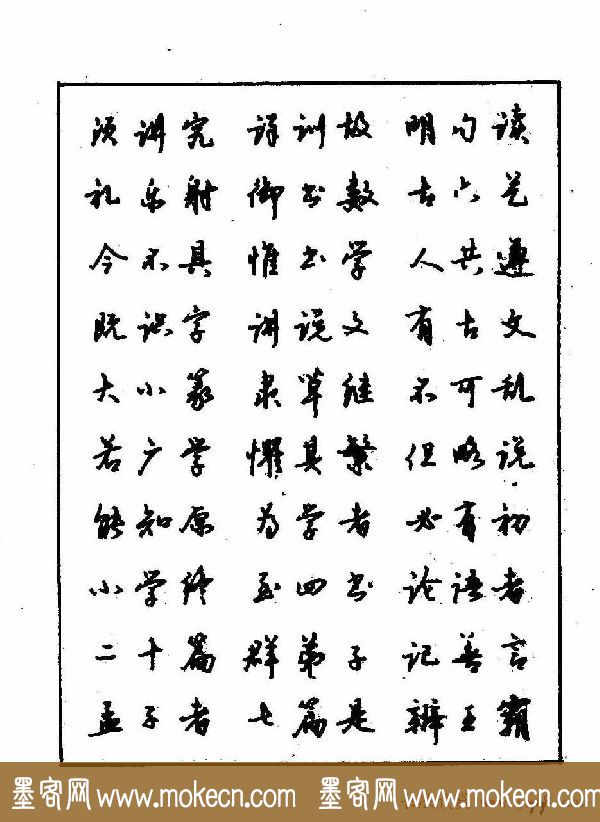 须讲究 详训故 明句读
礼乐射 御书数 古六艺
今不具 惟书学 人共遵
既识字 讲说文 有古文
大小篆 隶草继 不可乱
若广学 惧其繁 但略说
能知原 为学者 必有初
小学终 至四书 论语者
二十篇 群弟子 记善言
孟子者 七篇是 辨王霸
墨客网 www.mokecn.com 墨客网 www.mokecn.com